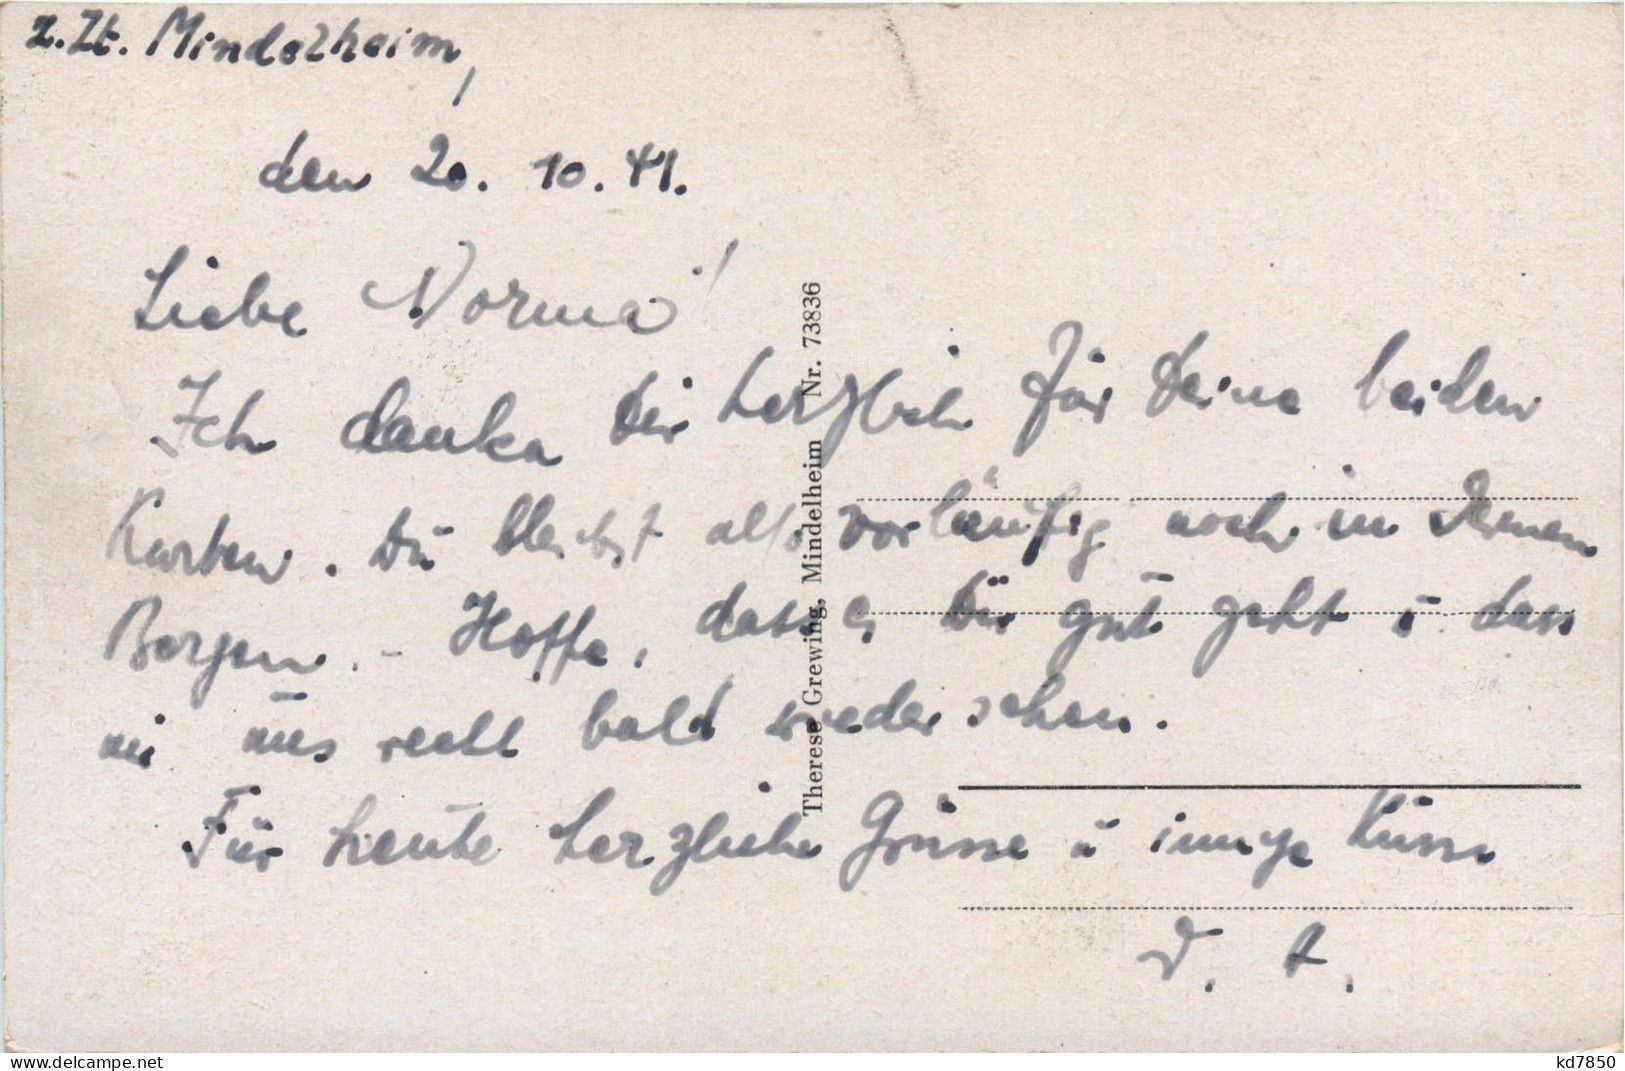 z. Zt. Mindelheim,
den 20. 10. 41.
Liebe Norma!
Ich danke Dir herzlich für Deine beiden
Karten. Du bleibst also vorläufig noch in Deinen
Bergen. - Hoffe, dass es Dir gut geht u. dass
wir uns recht bald wiedersehen.
Für heute herzliche Grüsse u innige Küsse
D. A.
Therese Grewing, Mindelheim Nr. 73836
delcampe.net
kd7850